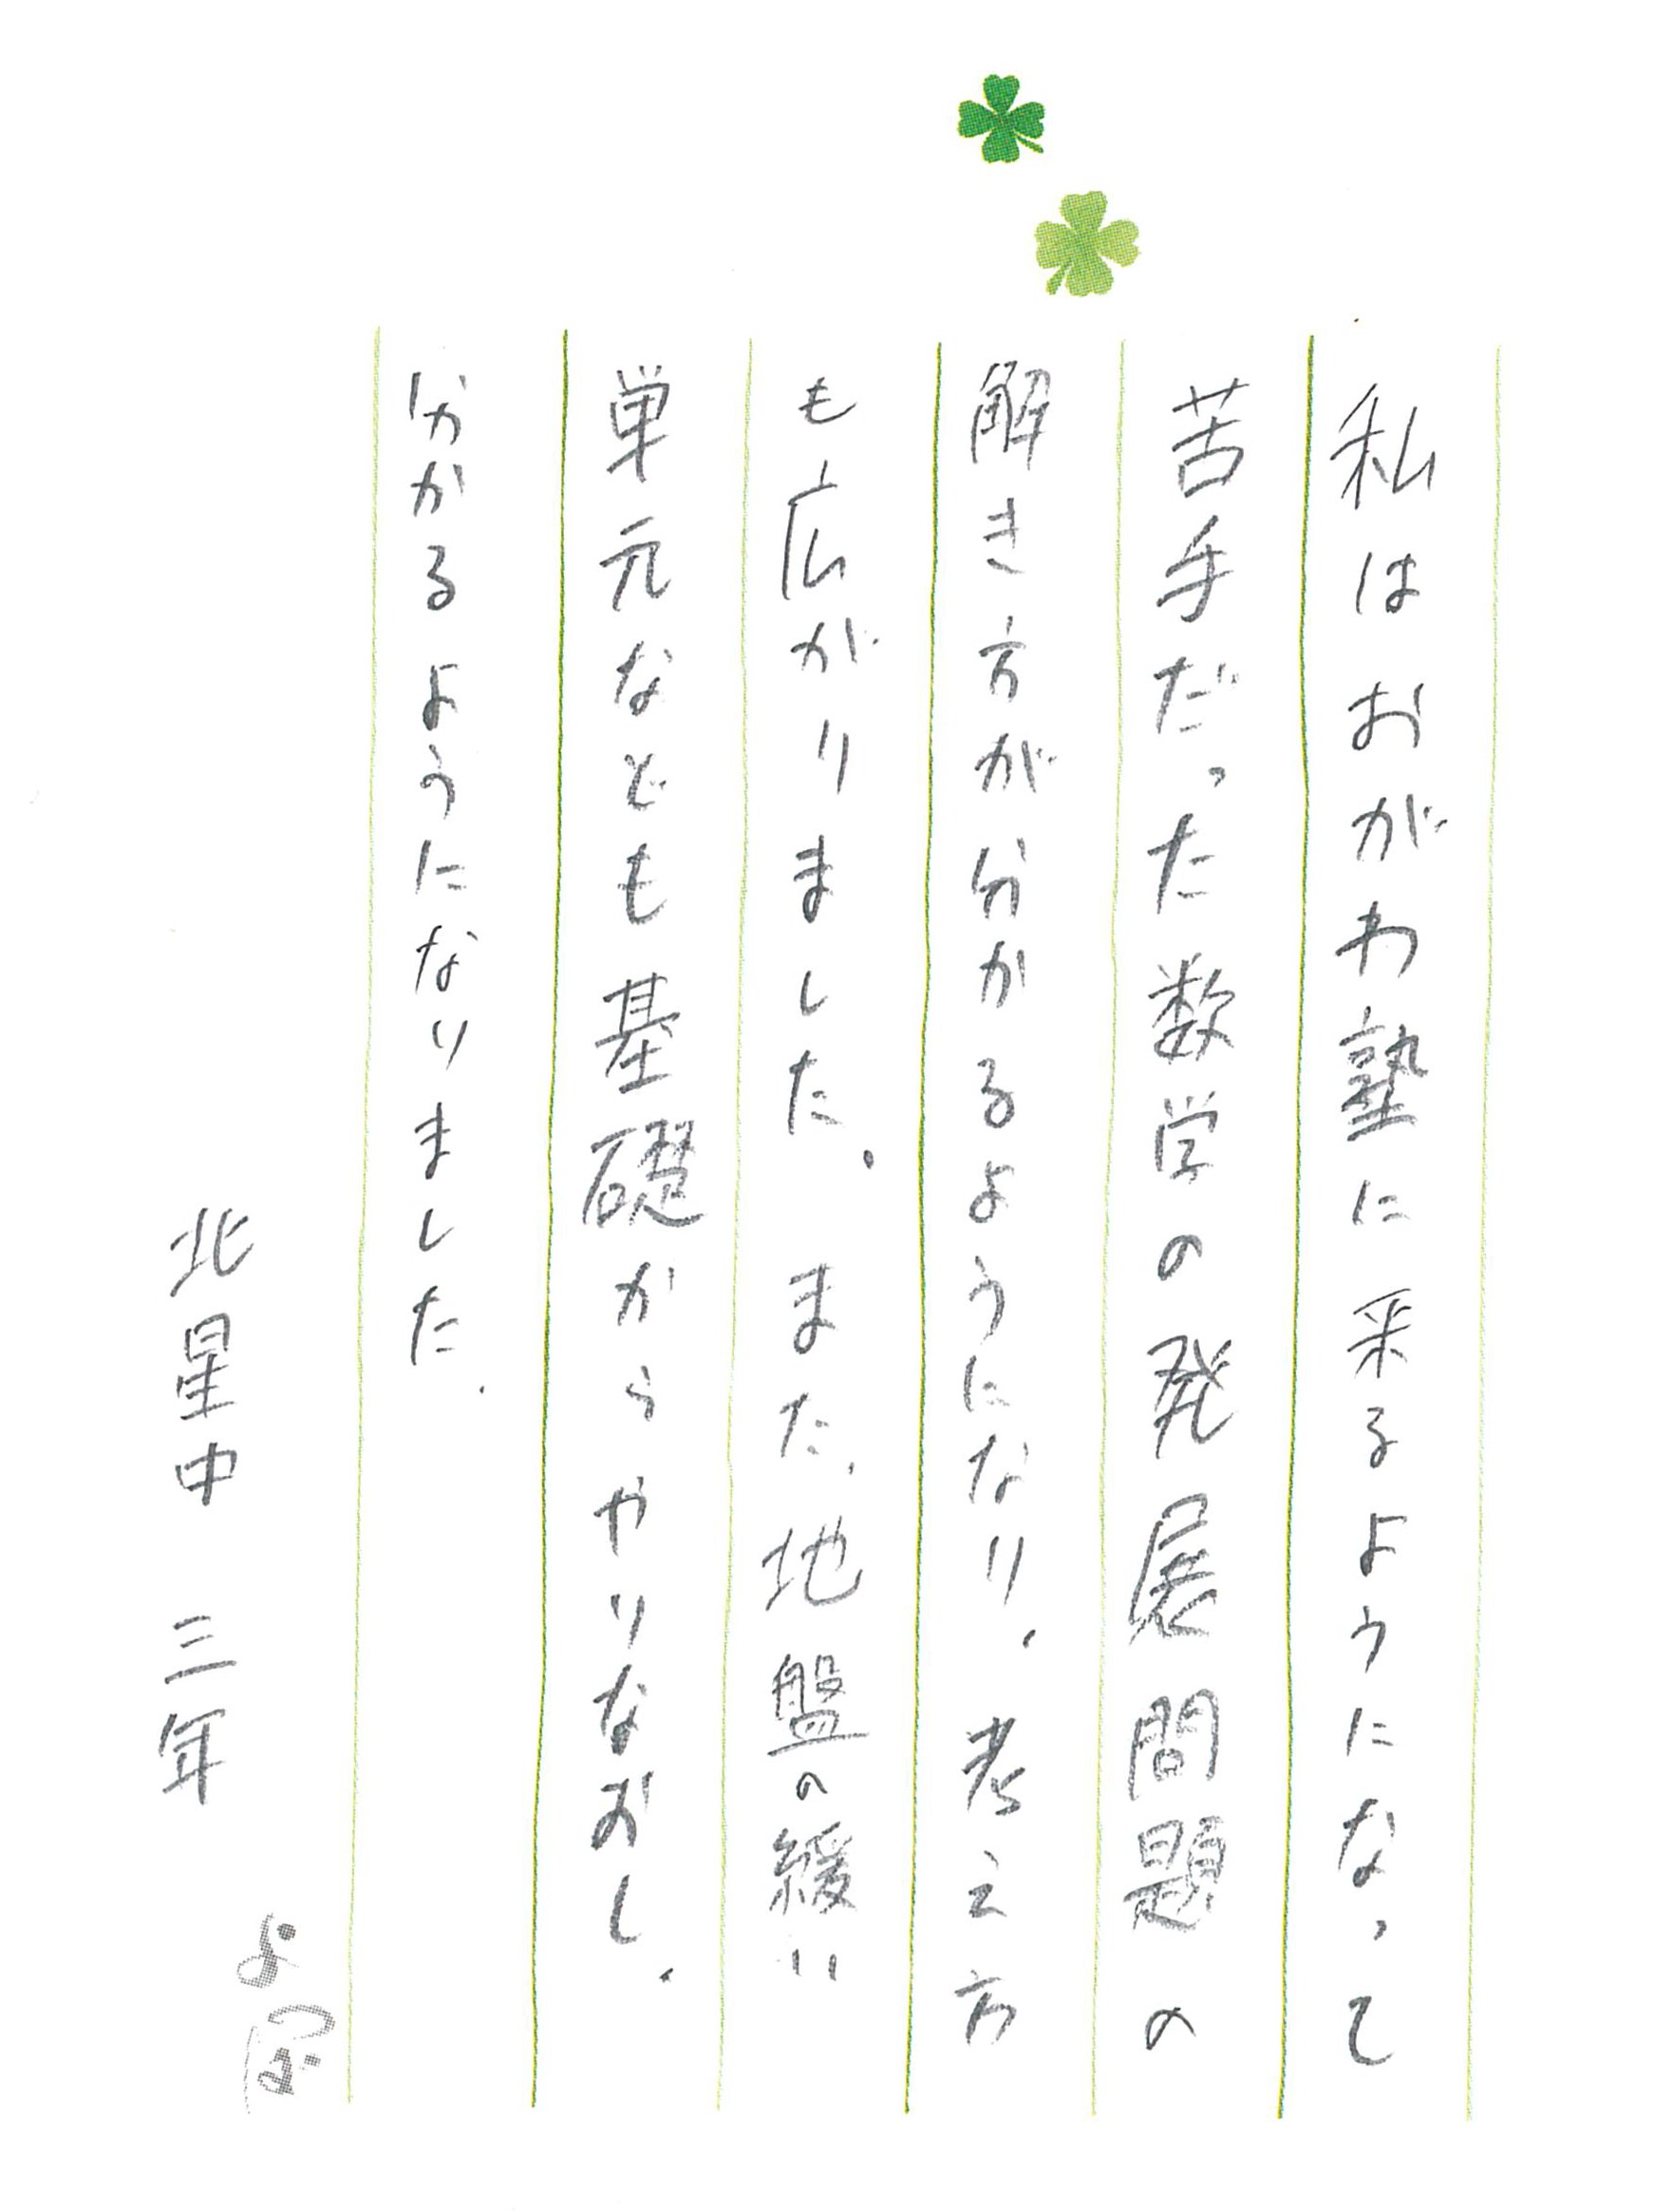 私はおがわ塾に来るようになって
苦手だった数学の発展問題の
解き方が分かるようになり、考え方
も広がりました。また、地盤の緩い
単元なども基礎からやりなおし、
分かるようになりました。
北星中 三年